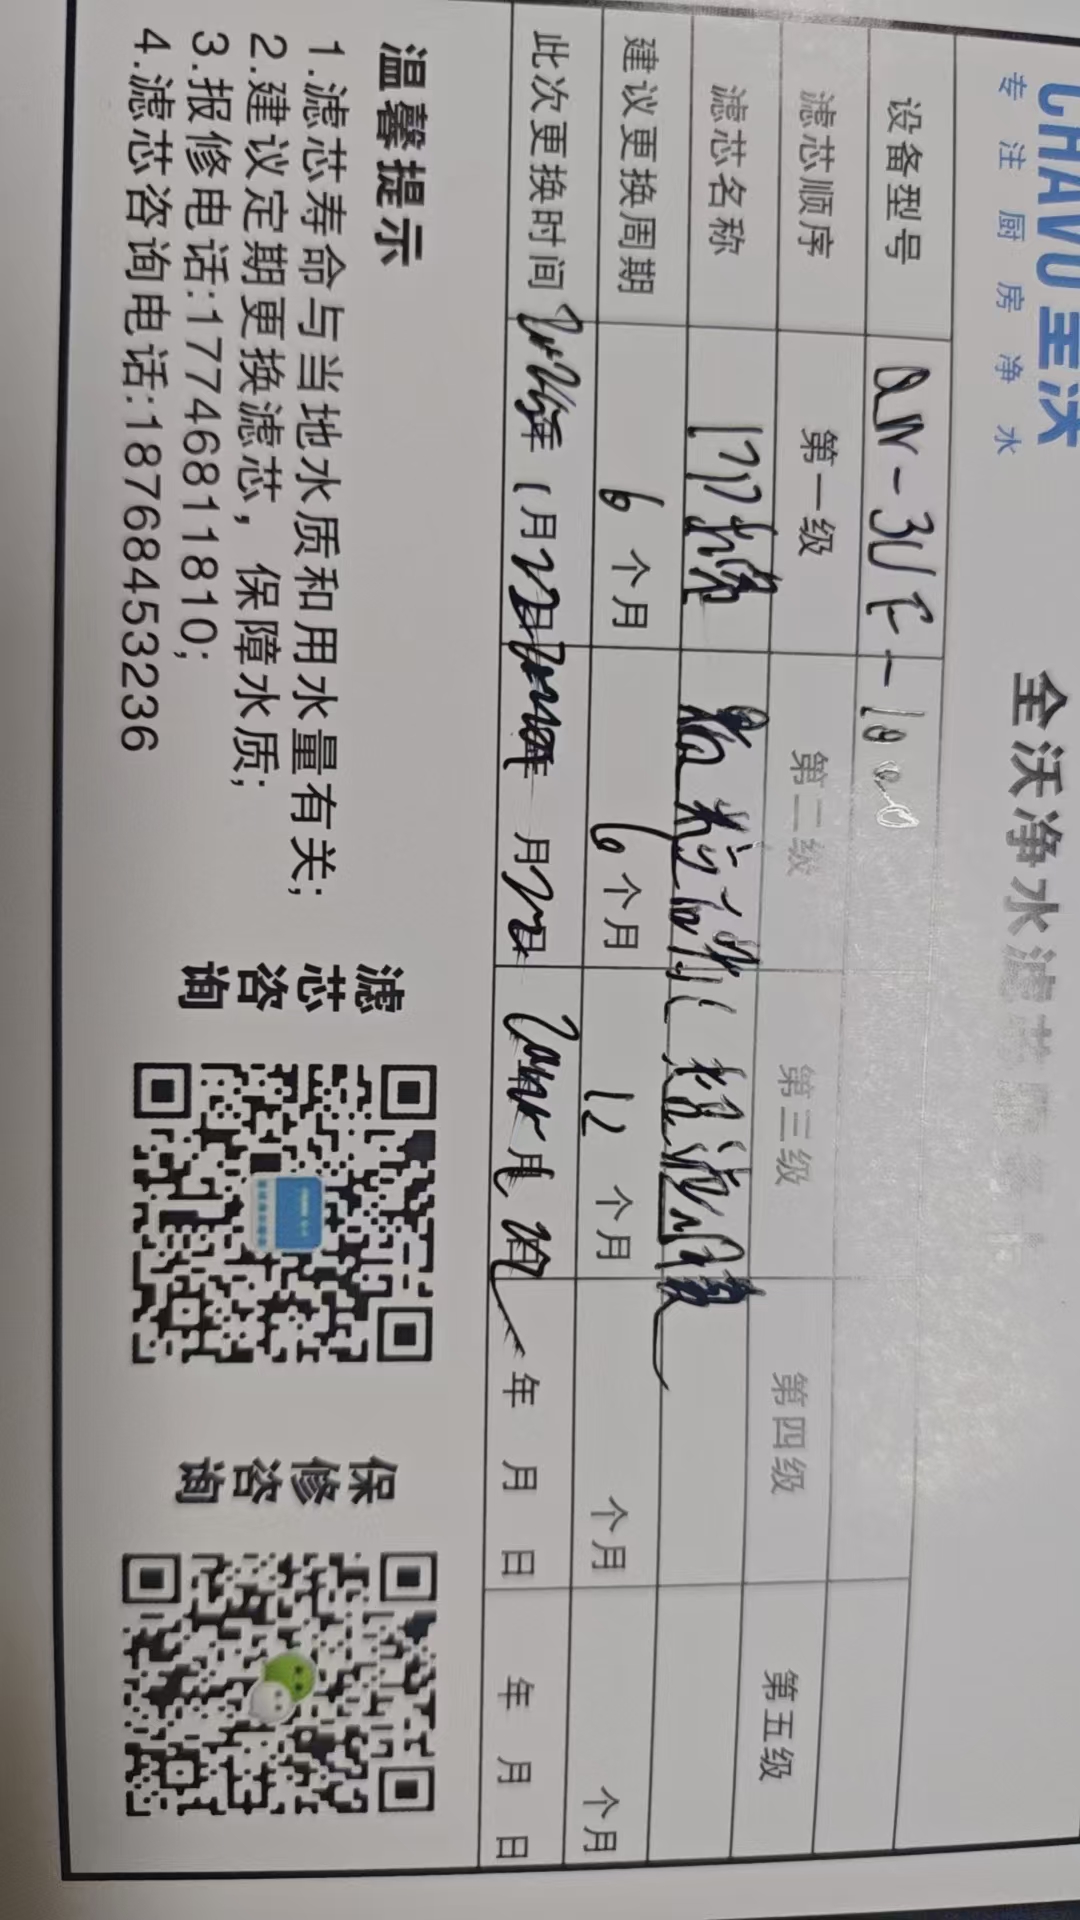 CHAVO 全沃
专注厨房净水
全沃净水滤芯
设备型号
滤芯顺序 第一级 第二级 第三级 第四级 第五级
滤芯名称 PP棉 颗粒活性
建议更换周期 6 个月 6 个月 12 个月 个月 个月
此次更换时间 年 1月 日 年 月 日 年 月 年 月 日 年 月 日
温馨提示
1.滤芯寿命与当地水质和用水量有关;
2.建议定期更换滤芯，保障水质;
3.报修电话:17746811810;
4.滤芯咨询电话:18768453236
滤芯咨询
保修咨询